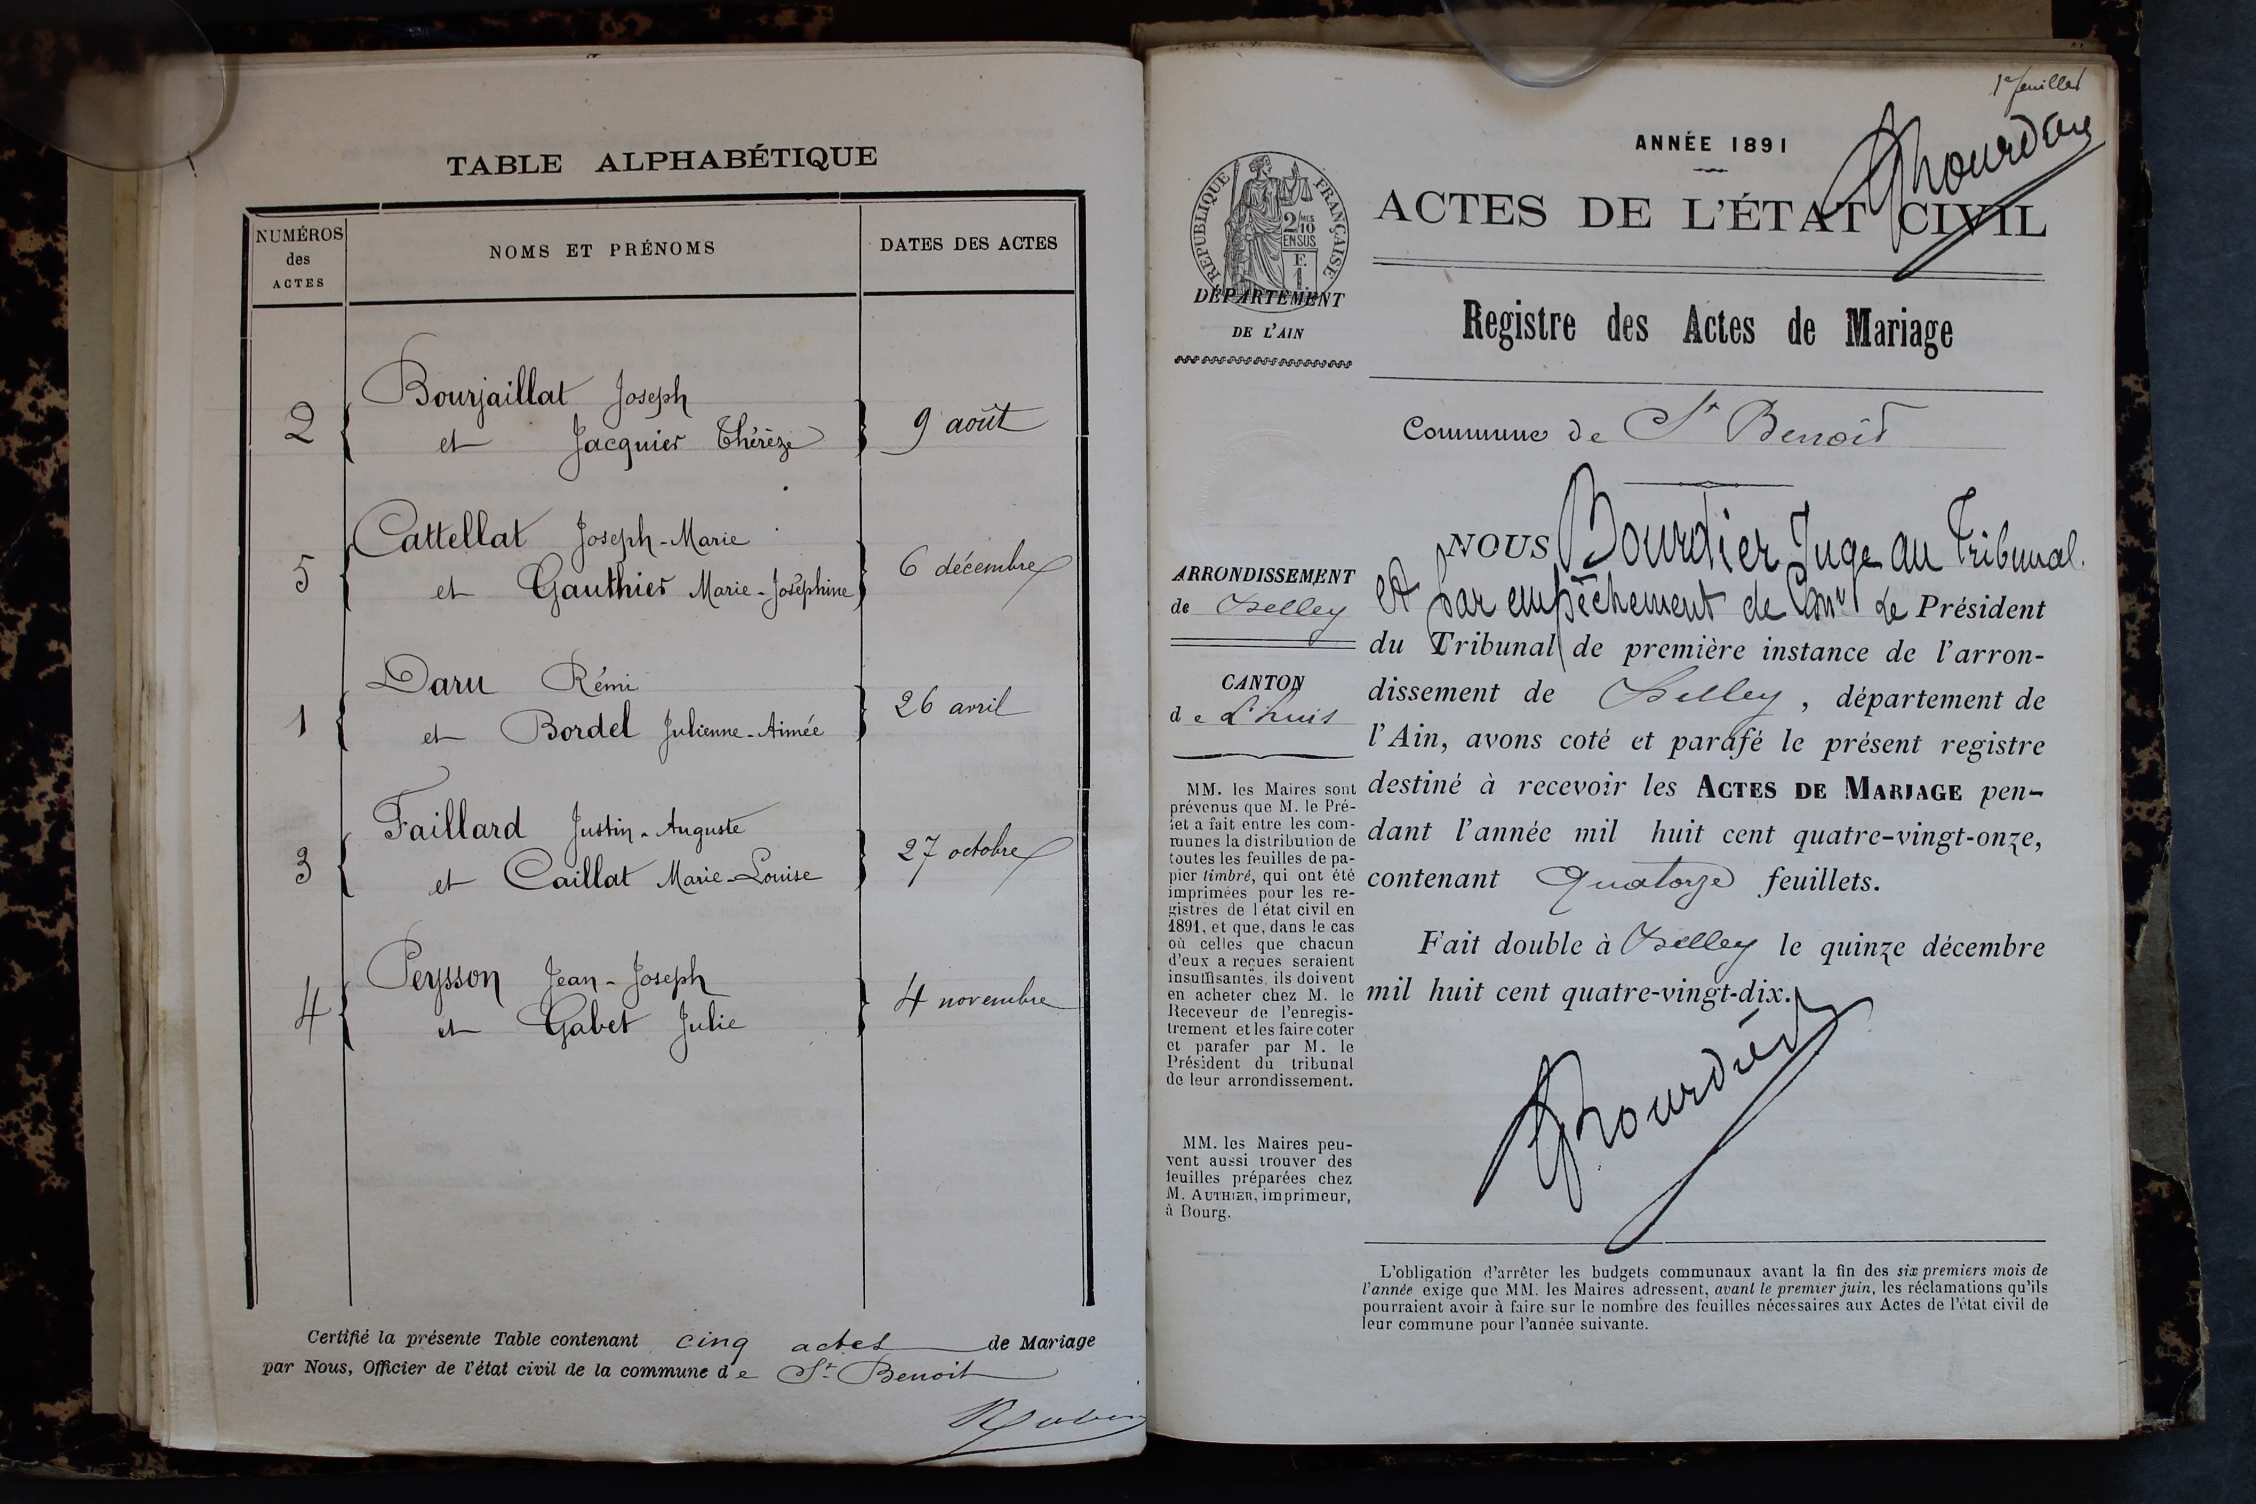 TABLE ALPHABÉTIQUE
NUMÉROS des ACTES
NOMS ET PRÉNOMS
DATES DES ACTES
2
Bourjaillat Joseph
et Jacquier Thérèze
9 août
5
Cattellat Joseph-Marie
et Gauthier Marie-Joséphine
6 décembre
1
Daru Rémi
et Bordel Julienne-Aimée
26 avril
3
Faillard Justin-Auguste
et Caillat Marie-Louise
27 octobre
4
Peysson Jean-Joseph
et Gabet Julie
4 novembre
Certifié la présente Table contenant cinq actes de Mariage
par Nous, Officier de l'état civil de la commune de St Benoit
1e feuillet
ANNÉE 1891
ACTES DE L'ÉTAT CIVIL
RÉPUBLIQUE FRANÇAISE
2/10 MES
EN SUS
F.
1
DÉPARTEMENT
DE L'AIN
Registre des Actes de Mariage
Commune de St Benoit
ARRONDISSEMENT
de Belley
CANTON
de Lhuis
MM. les Maires sont
prévenus que M. le Pré-
fet a fait entre les com-
munes la distribution de
toutes les feuilles de pa-
pier timbré, qui ont été
imprimées pour les re-
gistres de l'état civil en
1891, et que, dans le cas
où celles que chacun
d'eux a reçues seraient
insuffisantes, ils doivent
en acheter chez M. le
Receveur de l'enregis-
trement et les faire coter
et parafer par M. le
Président du tribunal
de leur arrondissement.
MM. les Maires peu-
vent aussi trouver des
feuilles préparées chez
M. AUTHIER, imprimeur,
à Bourg.
NOUS Bourdier Juge au Tribunal.
et par empêchement de le Président
du Tribunal de première instance de l'arron-
dissement de Belley, département de
l'Ain, avons coté et parafé le présent registre
destiné à recevoir les ACTES DE MARIAGE pen-
dant l'année mil huit cent quatre-vingt-onze,
contenant Quatorze feuillets.
Fait double à Belley le quinze décembre
mil huit cent quatre-vingt-dix.
Bourdier
L'obligation d'arrêter les budgets communaux avant la fin des six premiers mois de
l'année exige que MM. les Maires adressent, avant le premier juin, les réclamations qu'ils
pourraient avoir à faire sur le nombre des feuilles nécessaires aux Actes de l'état civil de
leur commune pour l'année suivante.